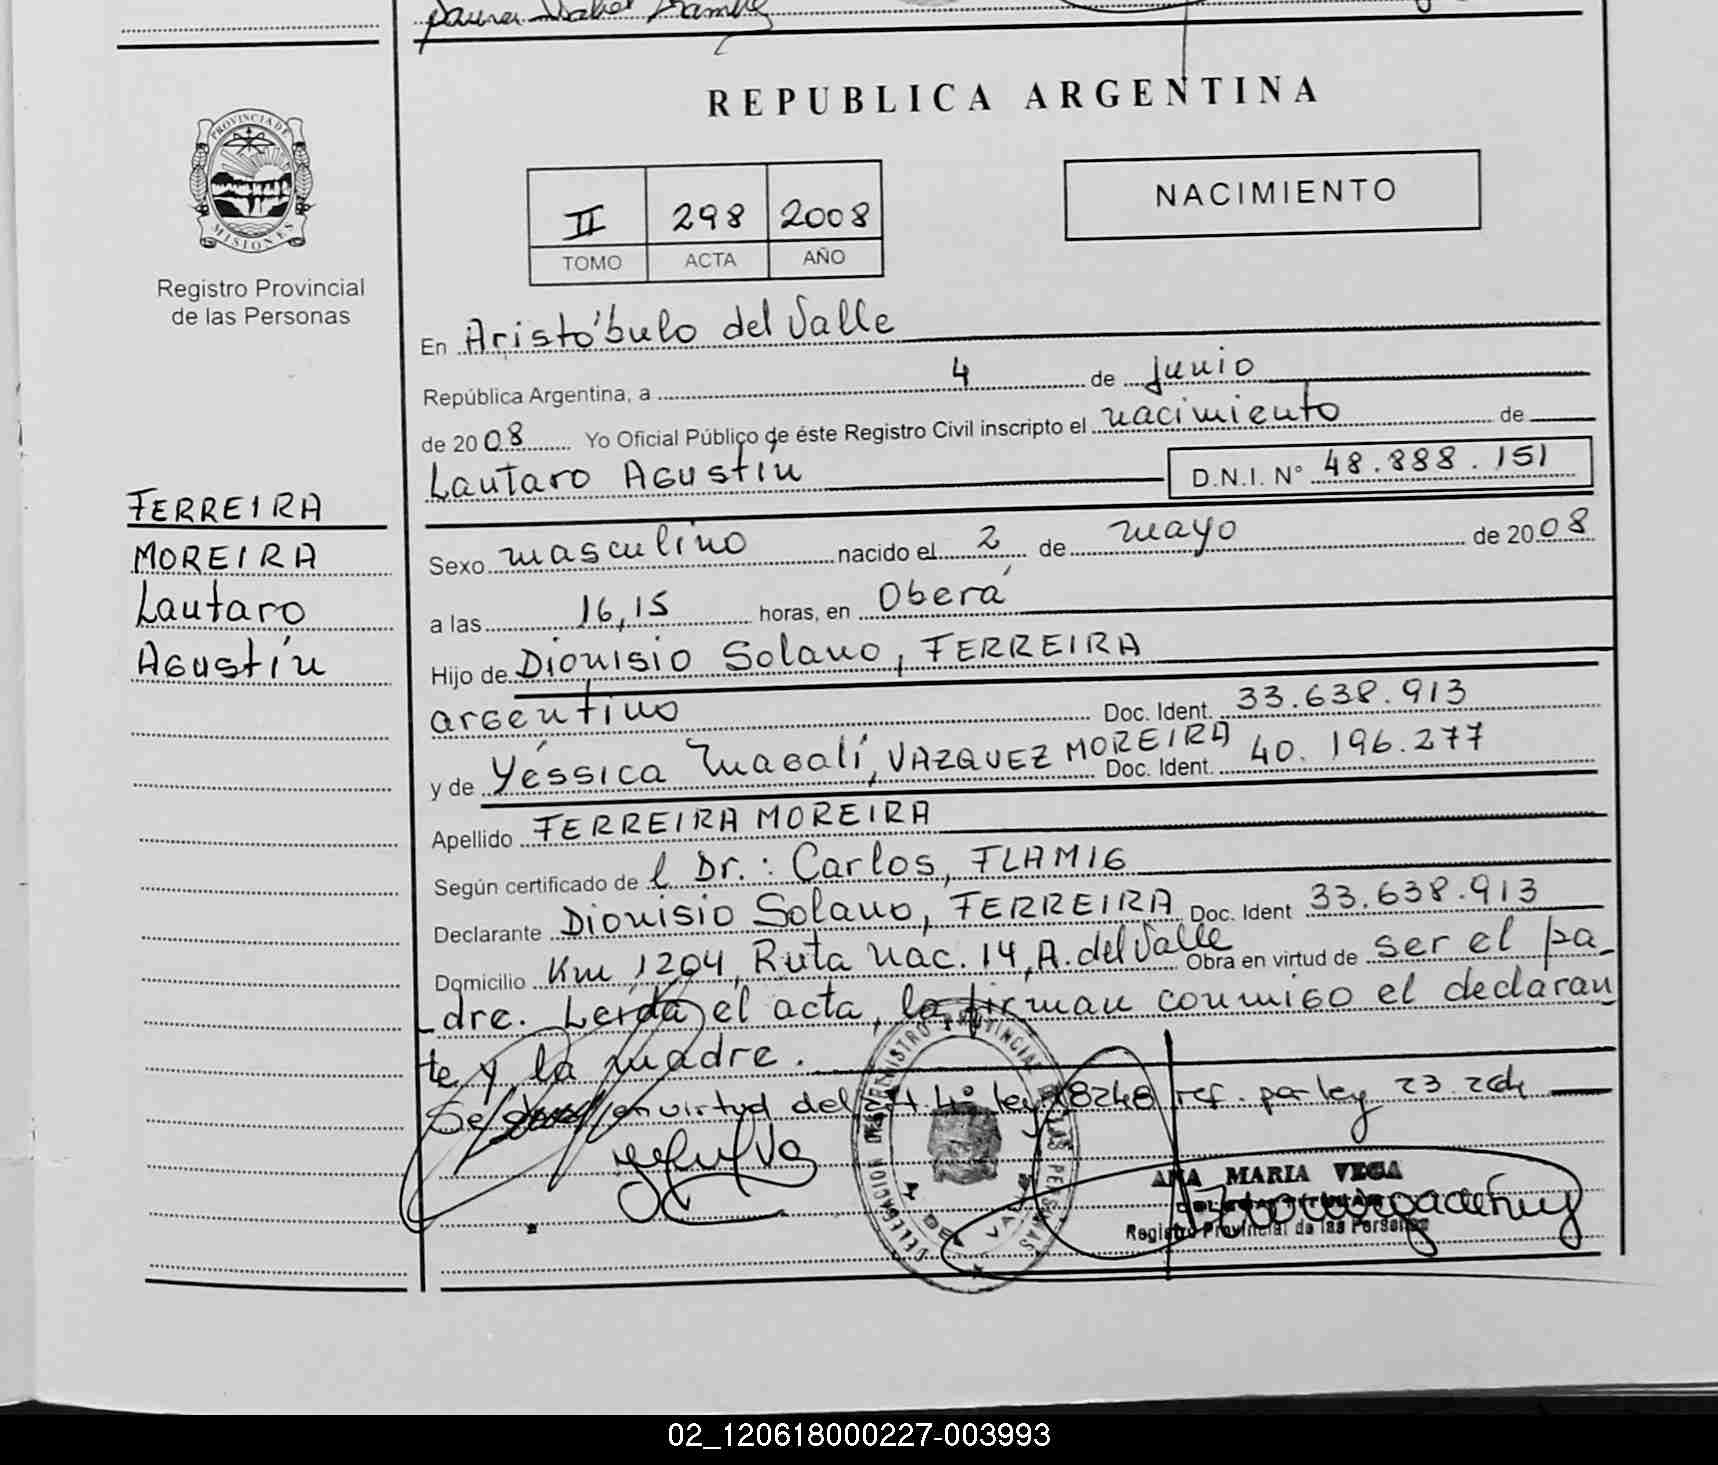 REPUBLICA ARGENTINA
PROVINCIA DE
MISIONES
Registro Provincial
de las Personas
II 298 2008
TOMO ACTA AÑO
NACIMIENTO
En Aristóbulo del Valle
República Argentina, a 4 de junio
de 2008 Yo Oficial Público de éste Registro Civil inscripto el nacimiento de
Lautaro Agustín D.N.I. N° 48.888.151
FERREIRA
MOREIRA
Lautaro
Agustín
Sexo masculino nacido el 2 de mayo de 2008
a las 16,15 horas, en Oberá
Hijo de Dionisio Solano, FERREIRA
argentino Doc. Ident. 33.638.913
y de Yéssica Magalí, VAZQUEZ MOREIRA Doc. Ident. 40.196.277
Apellido FERREIRA MOREIRA
Según certificado de l Dr.: Carlos, FLAMIG
Declarante Dionisio Solano, FERREIRA Doc. Ident 33.638.913
Domicilio Km 1204, Ruta Nac. 14, A. del Valle Obra en virtud de ser el pa-
-dre. Leída el acta, la firman conmigo el declaran
te y la madre.
Se en virtud del Art 4° ley 18248 ref. por ley 23.264
DELEGACION DEL REGISTRO PROVINCIAL DE LAS PERSONAS
ANA MARIA VEGA
Registro Provincial de las Personas
02_120618000227-003993